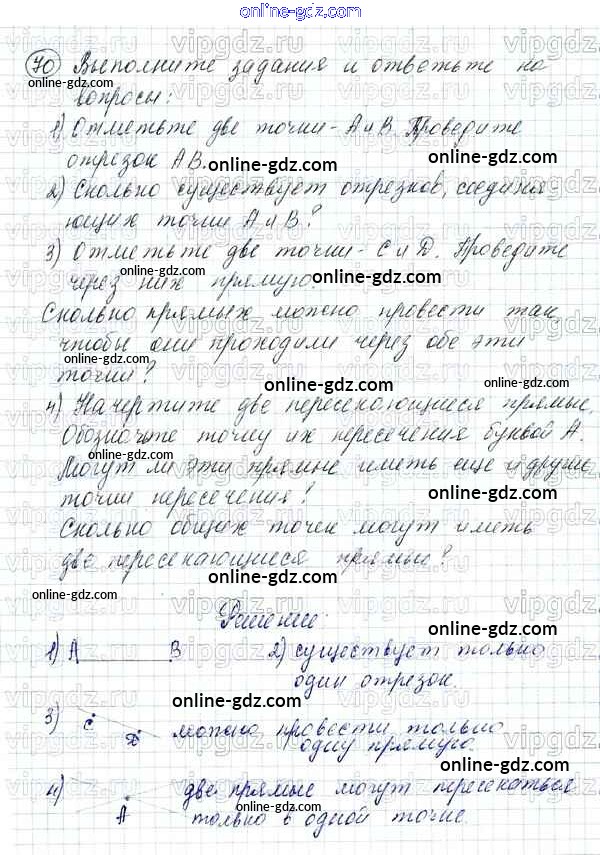 online-gdz.com
70 Выполните задания и ответьте на
online-gdz.com
вопросы:
1) Отметьте две точки - А и В. Проведите
отрезок АВ. online-gdz.com
2) Сколько существует отрезков, соединя-
ющих точки А и В? online-gdz.com
3) Отметьте две точки - С и D. Проведите
через них прямую.
online-gdz.com
Сколько прямых можно провести так
чтобы они проходили через обе эти
online-gdz.com
точки?
online-gdz.com
4) Начертите две пересекающиеся прямые.
Обозначьте точку их пересечения буквой А.
online-gdz.com
Могут ли эти прямые иметь еще и другие
точки пересечения?
online-gdz.com
Сколько общих точек могут иметь
две пересекающиеся прямые?
online-gdz.com
Решение:
online-gdz.com
1) А В 2) существует только
один отрезок.
online-gdz.com
3) С D можно провести только
одну прямую.
online-gdz.com
4) А две прямые могут пересекаться
только в одной точке.
online-gdz.com